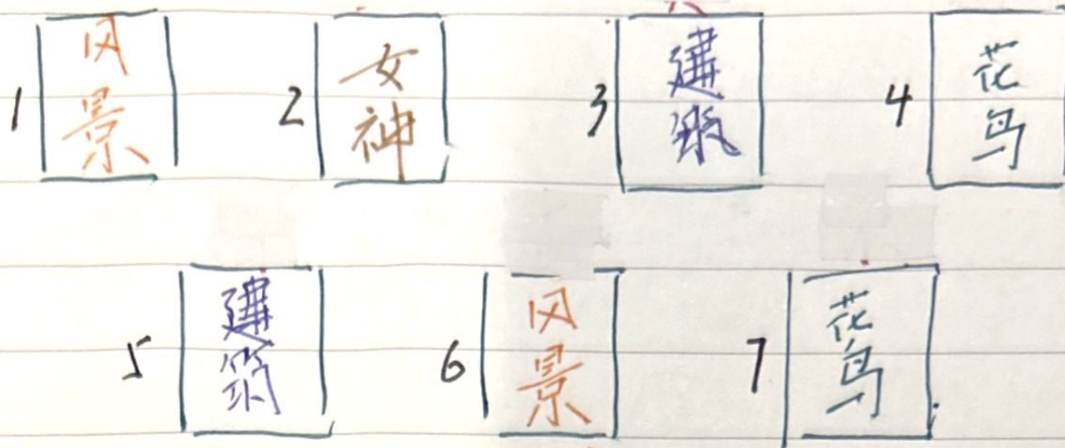 1 风景
2 女神
3 建筑
4 花鸟
5 建筑
6 风景
7 花鸟